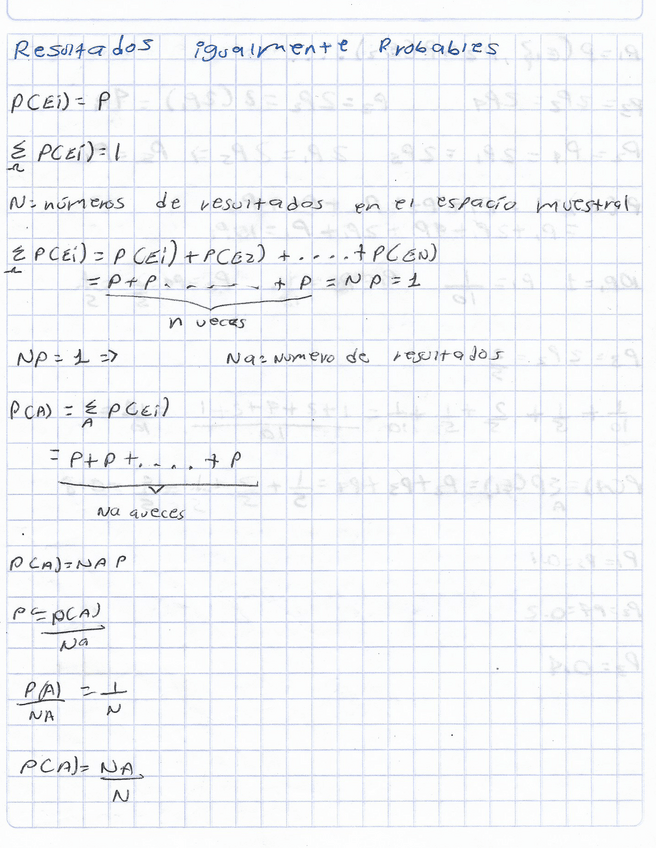 Resultados igualmente Probables
P(Ei) = P
Σ P(Ei) = 1
Ω
N = números de resultados en el espacio muestral
Σ P(Ei) = P(Ei) + P(E2) + ..... + P(EN)
Ω
= P + P ...... + P = NP = 1
n veces
NP = 1 => Na = Numero de resultados
P(A) = Σ P(Ei)
A
= P + P + ..... + P
Na aveces
P(A) = NA P
P = P(A)
Na
P(A) = 1
NA N
P(A) = NA
N